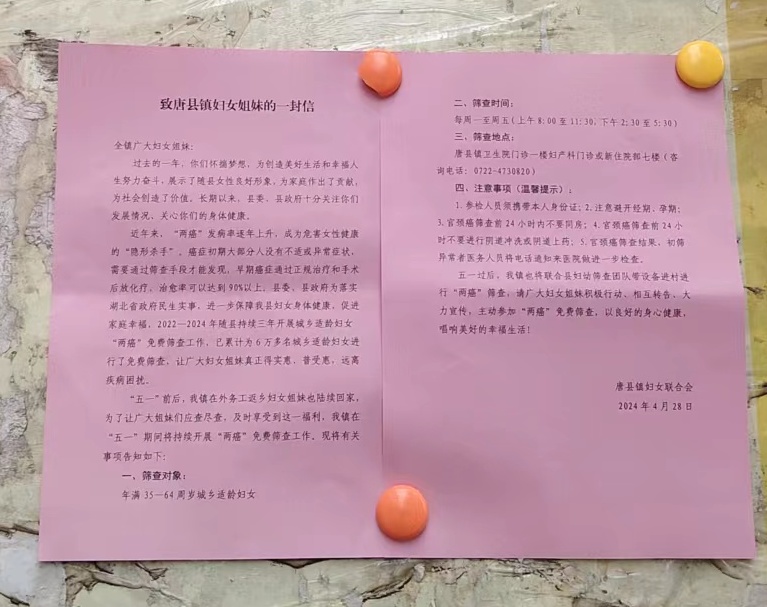 致唐县镇妇女姐妹的一封信
全镇广大妇女姐妹:
过去的一年，你们怀揣梦想，为创造美好生活和幸福人
生努力奋斗，展示了随县女性良好形象，为家庭作出了贡献，
为社会创造了价值。长期以来，县委、县政府十分关注你们
发展情况、关心你们的身体健康。
近年来，“两癌”发病率逐年上升，成为危害女性健康
的“隐形杀手”。癌症初期大部分人没有不适或异常症状，
需要通过筛查手段才能发现，早期癌症通过正规治疗和手术
后放化疗，治愈率可以达到90%以上。县委、县政府为落实
湖北省政府民生实事，进一步保障我县妇女身体健康，促进
家庭幸福，2022—2024年随县持续三年开展城乡适龄妇女
“两癌”免费筛查工作，已累计为6万多名城乡适龄妇女进
行了免费筛查，让广大妇女姐妹真正得实惠，普受惠，远离
疾病困扰。
“五一”前后，我镇在外务工返乡妇女姐妹也陆续回家，
为了让广大姐妹们应查尽查，及时享受到这一福利，我镇在
“五一”期间将持续开展“两癌”免费筛查工作。现将有关
事项告知如下:
一、筛查对象:
年满35—64周岁城乡适龄妇女
二、筛查时间:
每周一至周五(上午8:00至11:30,下午2:30至5:30)
三、筛查地点:
唐县镇卫生院门诊一楼妇产科门诊或新住院部七楼（咨
询电话：0722-4730820）
四、注意事项（温馨提示）:
1.参检人员须携带本人身份证；2.注意避开经期、孕期；
3.宫颈癌筛查前24小时内不要同房；4.宫颈癌筛查前24小
时不要进行阴道冲洗或阴道上药；5.宫颈癌筛查结果，初筛
异常者医务人员将电话通知来医院做进一步检查。
五一过后，我镇也将联合县妇幼筛查团队带设备进村进
行“两癌”筛查，请广大妇女姐妹积极行动、相互转告，大
力宣传，主动参加“两癌”免费筛查，以良好的身心健康，
唱响美好的幸福生活！
唐县镇妇女联合会
2024年4月28日